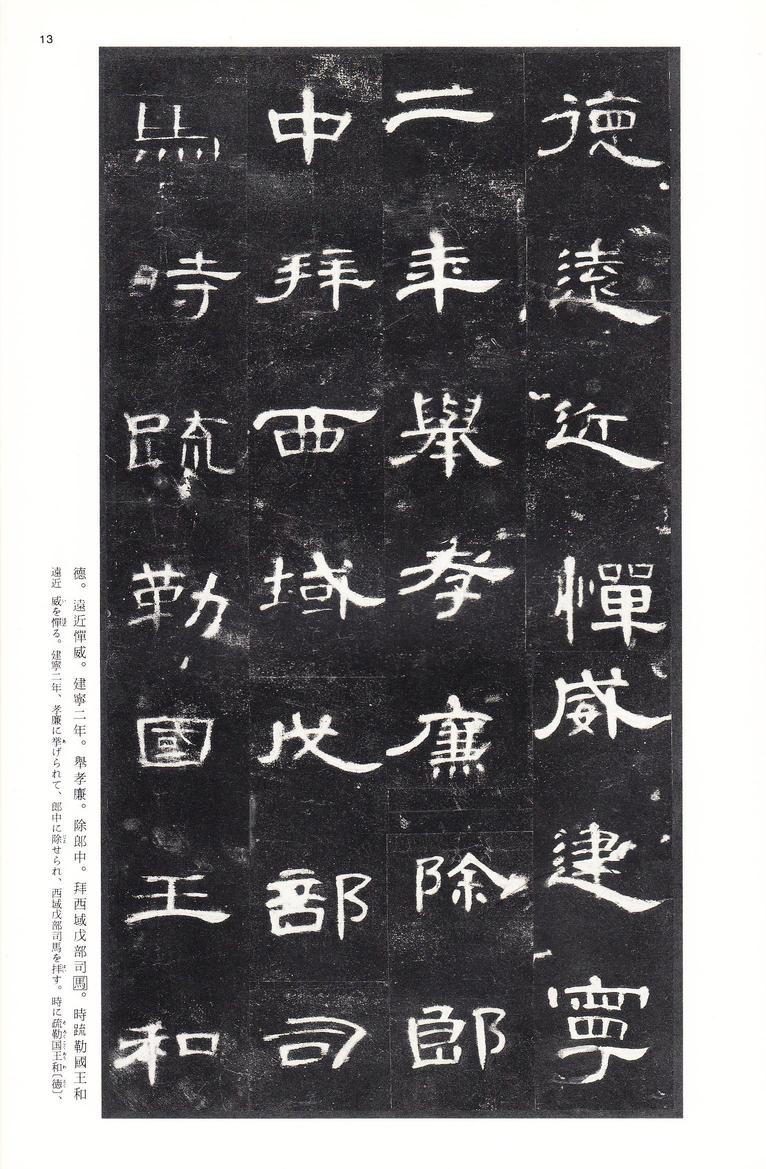 13
德遠近憚威建寧
二年舉孝廉除郎
中拜西域戊部司
馬時疏勒國王和
德。遠近憚威。建寧二年。舉孝廉。除郎中。拜西域戊部司馬。時疏勒國王和
遠近 威を憚る。建寧二年、孝廉に挙げられて、郎中に除せられ、西域戊部司馬を拝す。時に疏勒国王和(德)、